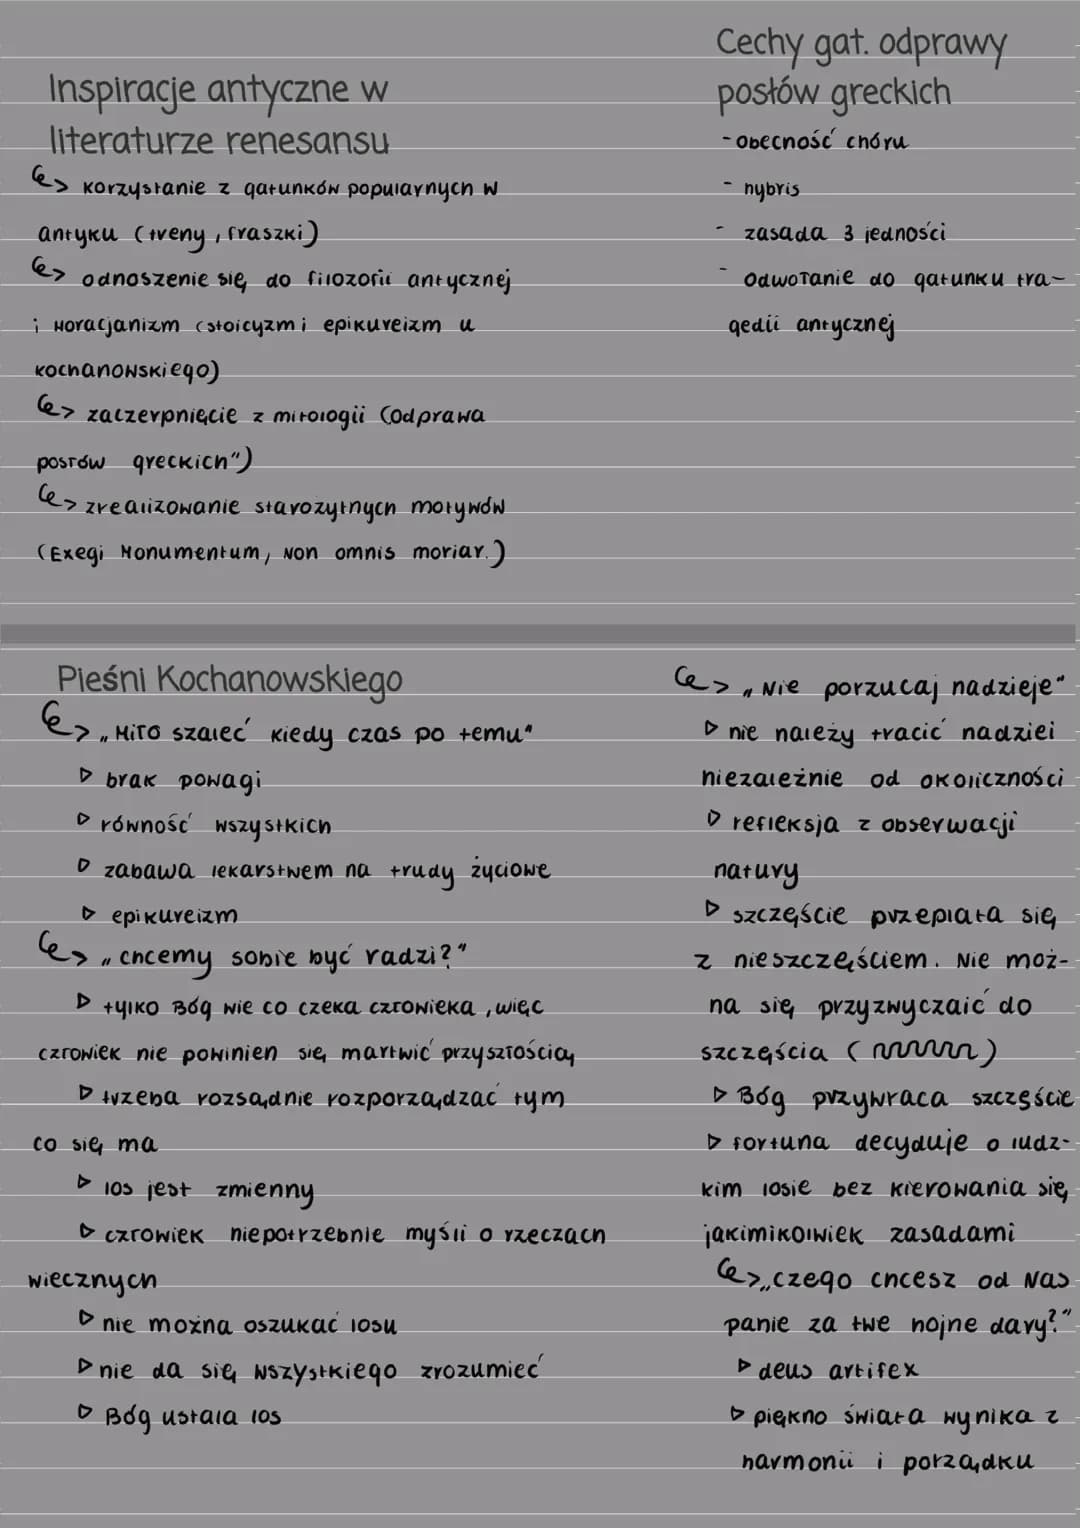 Inspiracje antyczne w
literaturze renesansu
korzystanie z gatunków popularnych w
antyku (treny, fraszki)
odnoszenie się do filozofii antycznej
i Horacjanizm (stoicyzm i epikureizm u
Kochanowskiego)
zaczerpnięcie z mitologii (Odprawa
posłów greckich")
zrealizowanie starożytnych motywów
(Exegi Monumentum, Non omnis moriar.)
Cechy gat. odprawy
posłów greckich
- obecność chóru
- hybris
- zasada 3 jedności
- odwołanie do gatunku tra-
gedii antycznej
Pieśni Kochanowskiego
„Miło szaleć kiedy czas po temu"
▷ brak powagi
▷ równość wszystkich
▷ zabawa lekarstwem na trudy życiowe
▷ epikureizm
„chcemy sobie być radzi?"
▷ tylko Bóg wie co czeka człowieka, więc
człowiek nie powinien się martwić przyszłością
▷ trzeba rozsądnie rozporządzać tym
co się ma
▷ los jest zmienny
▷ człowiek niepotrzebnie myśli o rzeczach
wiecznych
▷ nie można oszukać losu
▷ nie da się wszystkiego zrozumieć
▷ Bóg ustala los
„Nie porzucaj nadzieje"
▷ nie należy tracić nadziei
niezależnie od okoliczności
▷ refleksja z obserwacji
natury
▷ szczęście przeplata się
z nieszczęściem. Nie moż-
na się przyzwyczaić do
szczęścia ( )
▷ Bóg przywraca szczęście
▷ fortuna decyduje o ludz-
kim losie bez kierowania się
jakimikolwiek zasadami
„czego chcesz od Nas
panie za twe hojne dary?"
▷ deus artifex
▷ piękno świata wynika z
harmonii i porządku